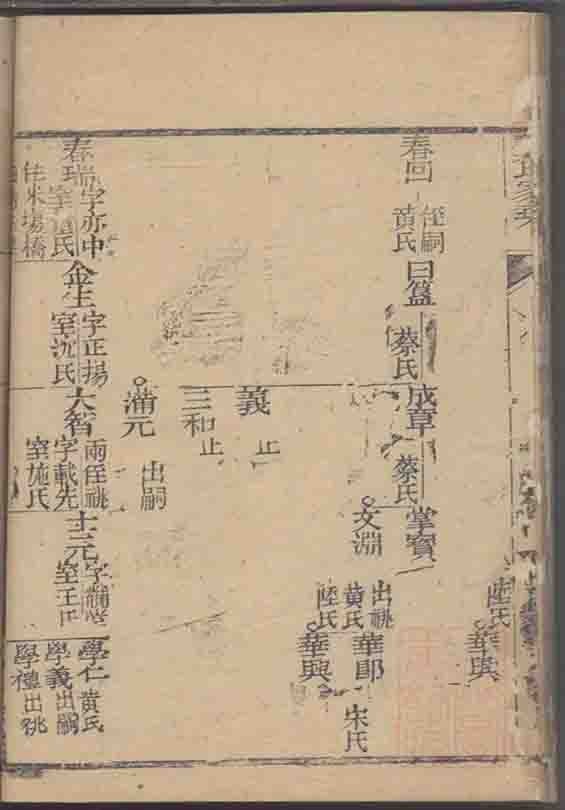 家乘
陸氏
華興
春回
侄嗣
黃氏
曰簋
蔡氏
成章
蔡氏
掌寶
文淵
出祧
黃氏
陸氏
華郎
宋氏
華興
義
止
三和
止
滿元
出嗣
春瑞
字亦中
氏
住米場橋
金生
字正揚
室沈氏
大智
兩侄祧
字載先
室施氏
士元
室王氏
學仁
黃氏
學義
出嗣
學禮
出祧